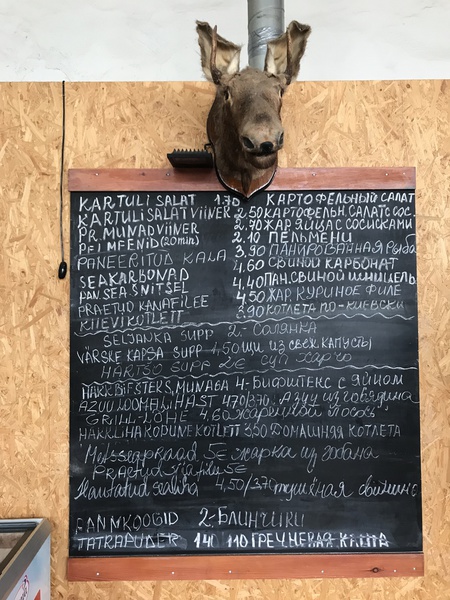 KARTULI SALAT 1.70 КАРТОФЕЛЬНЫЙ САЛАТ
KARTULI SALAT VIINER 2.50 КАРТОФЕЛЬН. САЛАТ С СОС.
PR. MUNAD VIINER 2.70 ЖАР. ЯЙЦА С СОСИСКАМИ
PELMENID (20min) 2.10 ПЕЛЬМЕНИ
PANEERITUD KALA 3.90 ПАНИРОВАННАЯ РЫБА
SEAKARBONAD 4.60 СВИНОЙ КАРБОНАТ
PAN. SEA. ŠNITSEL 4.40 ПАН. СВИНОЙ ШНИЦЕЛЬ
PRAETUD KANAFILEE 4.50 ЖАР. КУРИНОЕ ФИЛЕ
KIIEVI KOTLETT 3.90 КОТЛЕТА ПО-КИЕВСКИ
SELJANKA SUPP 2.- СОЛЯНКА
VÄRSKE KAPSA SUPP 1.50 ЩИ ИЗ СВЕЖ. КАПУСТЫ
HARTŠO SUPP 2€ СУП ХАРЧО
HAKKBIFSTEKS, MUNAGA 4- БИФШТЕКС С ЯЙЦОМ
AZUU LOOMALIHAST 4.70/3.70. АЗУ ИЗ ГОВЯДИНА
GRILL-LÕHE 4.60 ЖАРЕННОЙ ЛОСОСЬ
HAKKLIHA KODUNE KOTLETT 3.50 ДОМАШНЯЯ КОТЛЕТА
Metsseapraad 5€ жарка из кабана
Praetud 5€
Hautatud sealiha 4,50/3.70 тушёная свинина
PANNKOOGID 2.- БЛИНЧИКИ
TATRAPUDER 1.40 1.10 ГРЕЧНЕВАЯ КАША